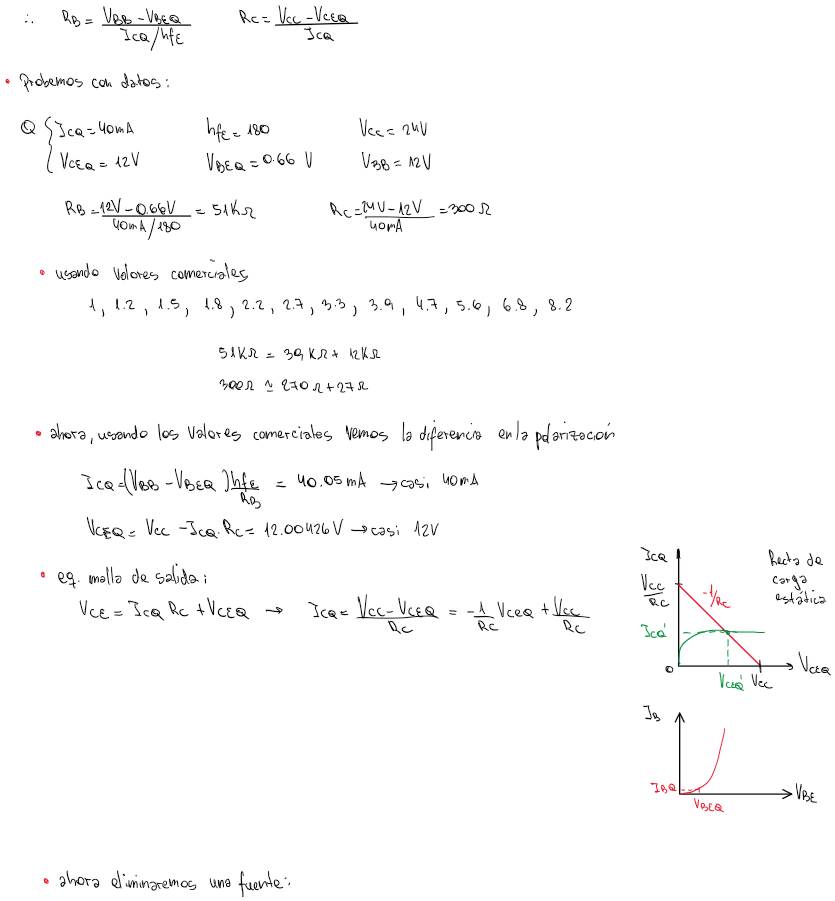 ∴ R_B = (V_BB - V_BEQ)/(I_CQ/hfE) R_C = (V_CC - V_CEQ)/I_CQ
• Probemos con datos:
Q { I_CQ = 40mA hfE = 180 V_CC = 24V
V_CEQ = 12V V_BEQ = 0.66 V V_BB = 12V
R_B = (12V - 0.66V)/(40mA/180) = 51KΩ R_C = (24V - 12V)/40mA = 300Ω
• usando valores comerciales
1, 1.2, 1.5, 1.8, 2.2, 2.7, 3.3, 3.9, 4.7, 5.6, 6.8, 8.2
51KΩ = 39KΩ + 12KΩ
300Ω ≃ 270Ω + 27Ω
• ahora, usando los valores comerciales vemos la diferencia en la polarización
I_CQ = (V_BB - V_BEQ) hfE/R_B = 40.05mA → casi 40mA
V_CEQ = V_CC - I_CQ·R_C = 12.00426V → casi 12V
• eq. malla de salida:
V_CE = I_CQ R_C + V_CEQ → I_CQ = (V_CC - V_CEQ)/R_C = -1/R_C V_CEQ + V_CC/R_C
I_CQ
Recta de
carga
estática
V_CC/R_C
-1/R_C
I_CQ'
0
V_CEQ' V_CC
V_CEQ
I_B
I_BQ
V_BEQ
V_BE
• ahora eliminaremos una fuente: